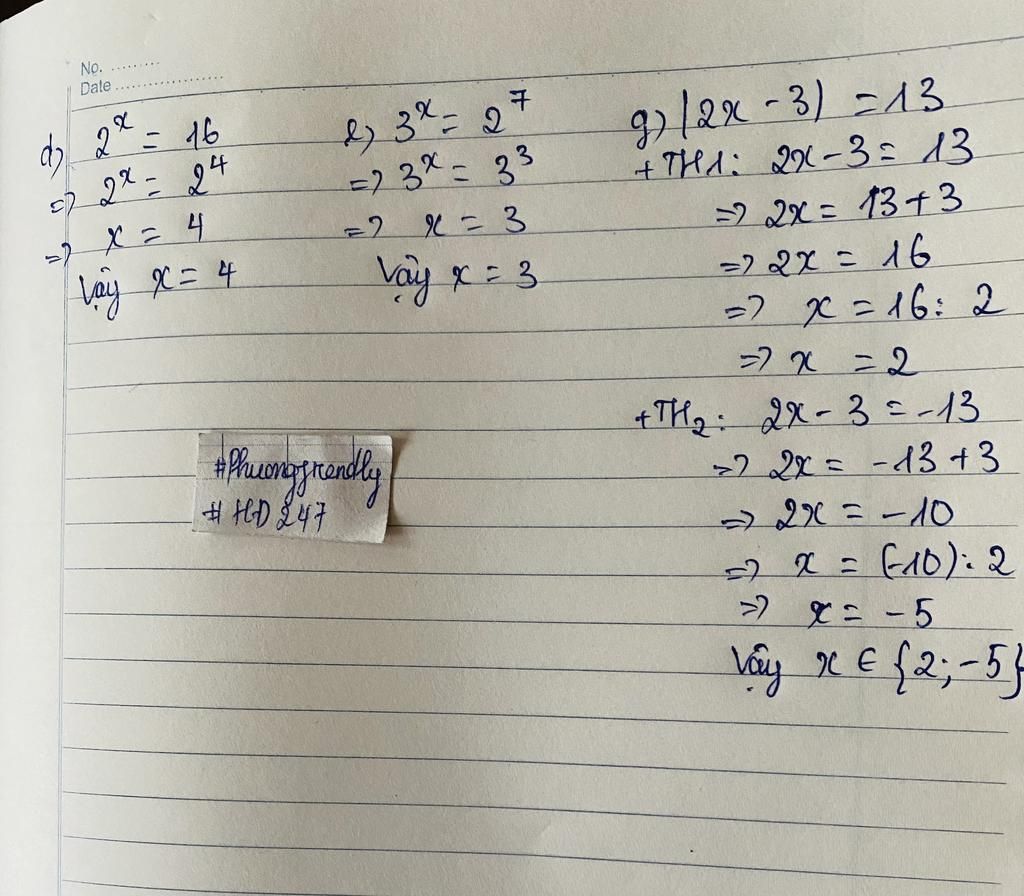 No. .........
Date ...................
d) 2ˣ = 16
=> 2ˣ = 2⁴
=> x = 4
Vậy x = 4
e) 3ˣ = 2⁷
=> 3ˣ = 3³
=> x = 3
Vậy x = 3
g) |2x - 3| = 13
+ TH1: 2x - 3 = 13
=> 2x = 13 + 3
=> 2x = 16
=> x = 16 : 2
=> x = 2
+ TH₂: 2x - 3 = -13
=> 2x = -13 + 3
=> 2x = -10
=> x = (-10) : 2
=> x = -5
Vậy x ∈ {2; -5}
#Phuongfrendly
# HD 247